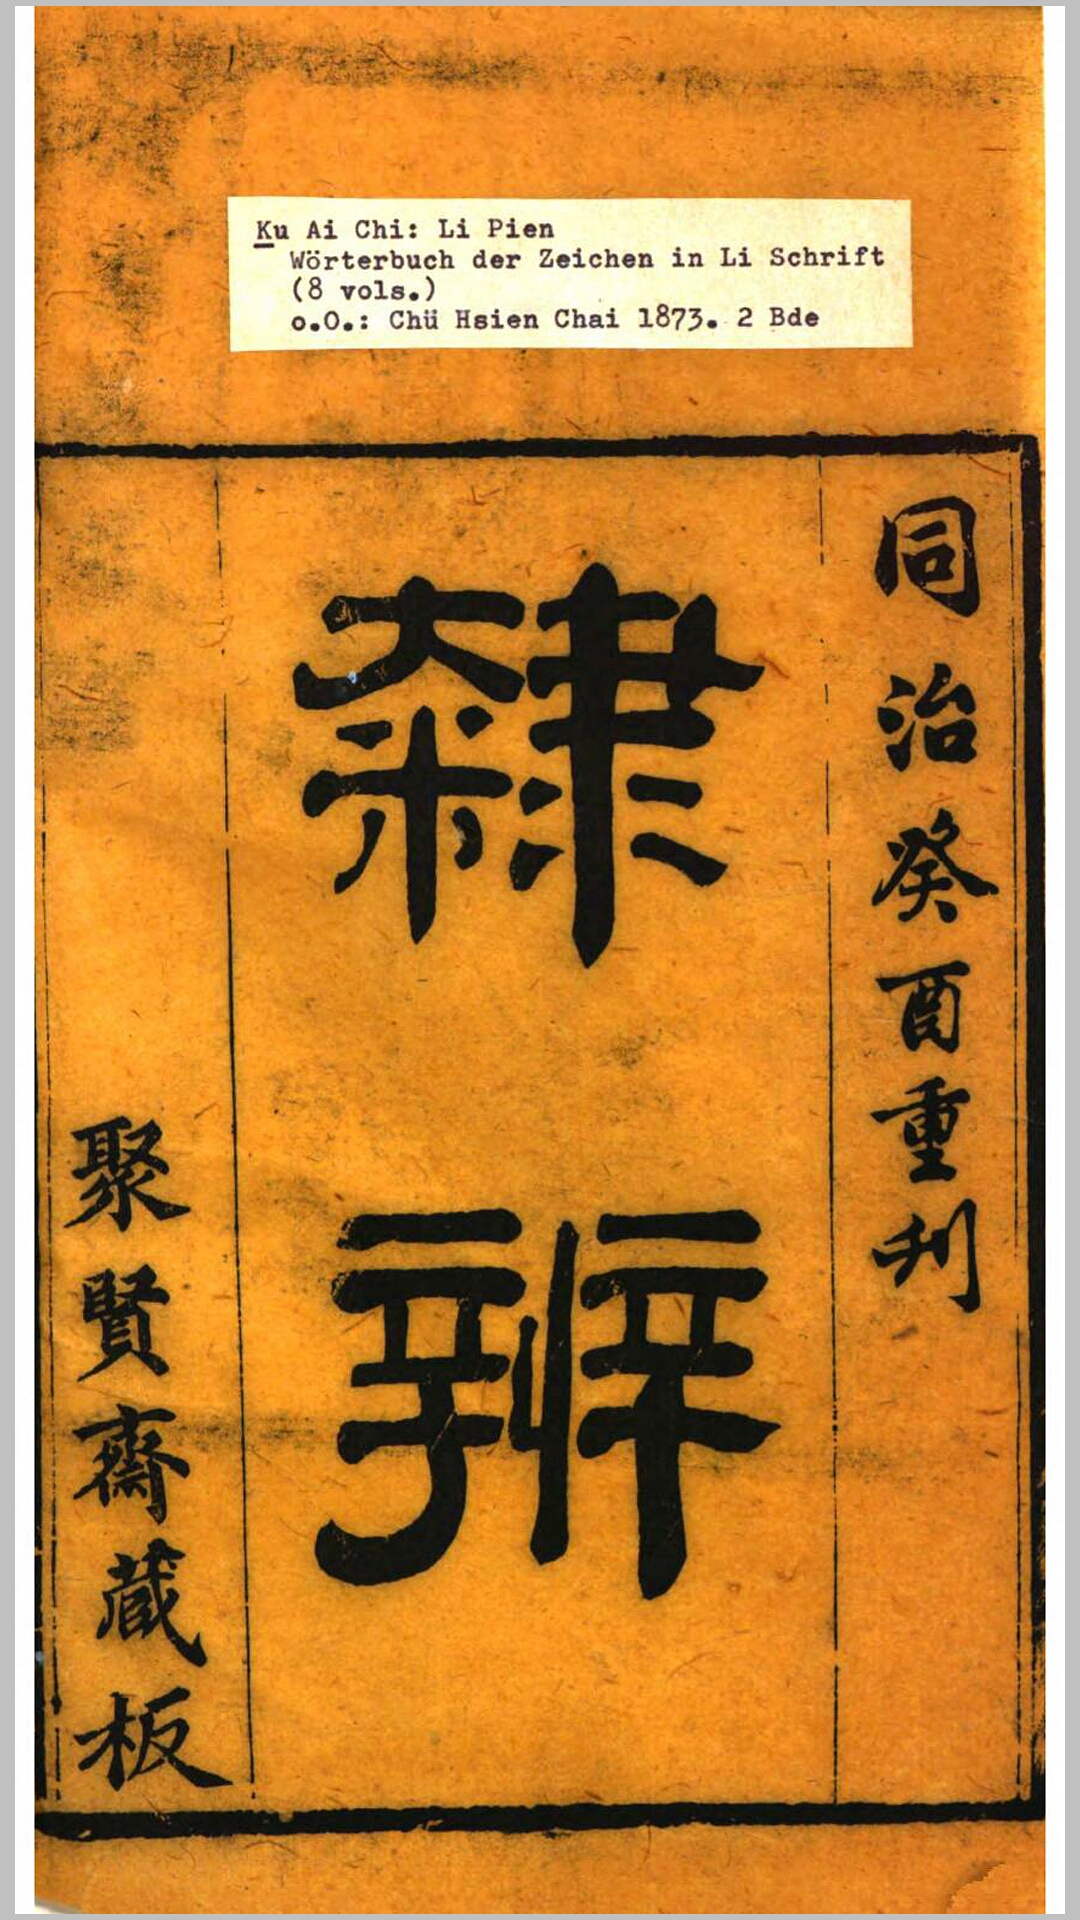 Ku Ai Chi: Li Pien
Wörterbuch der Zeichen in Li Schrift
(8 vols.)
o.O.: Chü Hsien Chai 1873. 2 Bde
同治癸酉重刋
隸辨
聚賢齋藏板